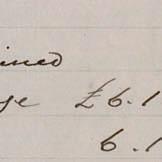 ined
ge £6.1
6.1